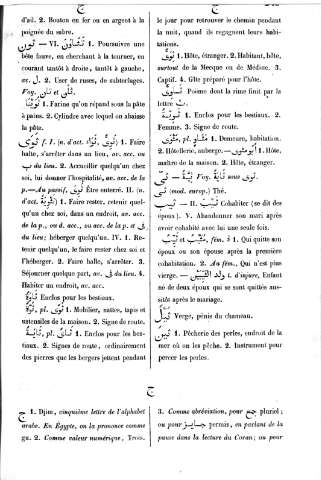 d'ail. 2. Bouton en fer ou en argent à la
poignée du sabre.
— VI. 1. Poursuivre une
bête fauve, en cherchant à la tourner, en
courant tantôt à droite, tantôt à gauche,
av. ل. 2. User de ruses, de subterfuges.
Voy.
1. Farine qu'on répand sous la pâte
à pains. 2. Cylindre avec lequel on abaisse
la pâte.
ثَوَى f. I. (n. d'act. 1. Faire
halte, s'arrêter dans un lieu, av. acc. ou
du lieu. 2. Accueillir quelqu'un chez
soi, lui donner l'hospitalité, av. acc. de la
p.—Au passif, Être enterré. II. (n.
d'act. 1. Faire rester, retenir quel-
qu'un chez soi, dans un endroit, av. acc.
de la p., ou d. acc., ou acc. de la p. et
du lieu; héberger quelqu'un. IV. 1. Re-
tenir quelqu'un, le faire rester chez soi et
l'héberger. 2. Faire halte, s'arrêter. 3.
Séjourner quelque part, av. du lieu. 4.
Habiter un endroit, av. acc.
Enclos pour les bestiaux.
pl. 1. Mobilier, nattes, tapis et
ustensiles de la maison. 2. Signe de route.
pl. 1. Enclos pour les bes-
tiaux. 2. Signes de route, ordinairement
des pierres que les bergers jettent pendant
le jour pour retrouver le chemin pendant
la nuit, quand ils regagnent leurs habi-
tations.
1. Hôte, étranger. 2. Habitant, hôte,
surtout de la Mecque ou de Médine. 3.
Captif. 4. Gîte préparé pour l'hôte.
Poème dont la rime finit par la
lettre ث.
1. Enclos pour les bestiaux. 2.
Femme. 3. Signe de route.
pl. 1. Demeure, habitation.
2. Hôtellerie, auberge. — 1. Hôte,
maître de la maison. 2. Hôte, étranger.
Voy. sous
(mod. europ.) Thé.
— II. Cohabiter (se dit des
époux). V. Abandonner son mari après
avoir cohabité avec lui une seule fois.
fém. 1. Qui quitte son
époux ou son épouse après la première
cohabitation. 2. Au fém., Qui n'est plus
vierge. — t. d'injure, Enfant
né de deux époux qui se sont quittés aus-
sitôt après le mariage.
Verge, pénis du chameau.
1. Pêcherie des perles, endroit de la
mer où on les pêche. 2. Instrument pour
percer les perles.
ج
ج 1. Djim, cinquième lettre de l'alphabet
arabe. En Égypte, on la prononce comme
gu. 2. Comme valeur numérique, Trois.
3. Comme abréviation, pour جمع pluriel;
ou pour جايز permis, en parlant de la
pause dans la lecture du Coran; ou pour